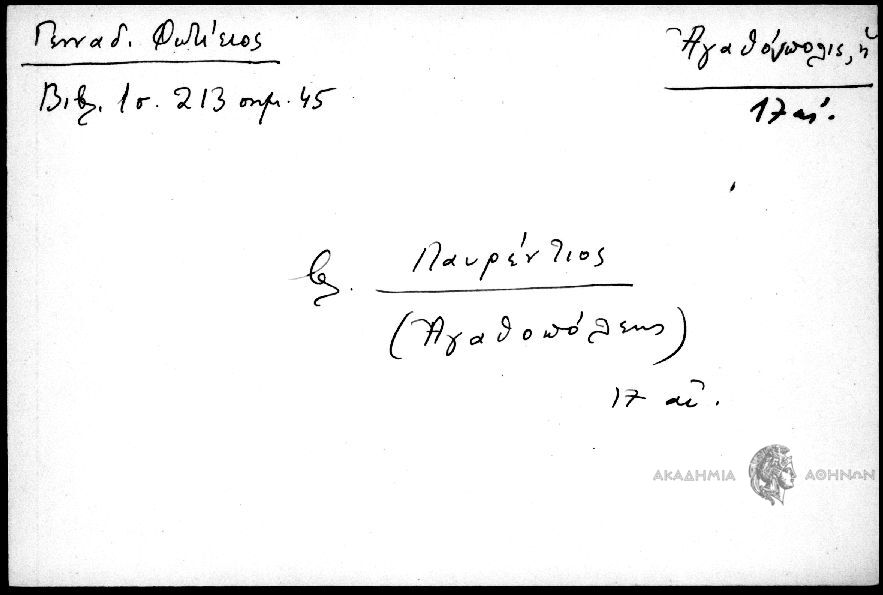 Γενναδ. Φωτίειος
Βιβλ. 1 σ. 213 σημ. 45
Ἀγαθόπολις, ἡ
17 αἰ.
βλ. Λαυρέντιος
(Ἀγαθοπόλεως)
17 αἰ.
ΑΚΑΔΗΜΙΑ ΑΘΗΝΩΝ